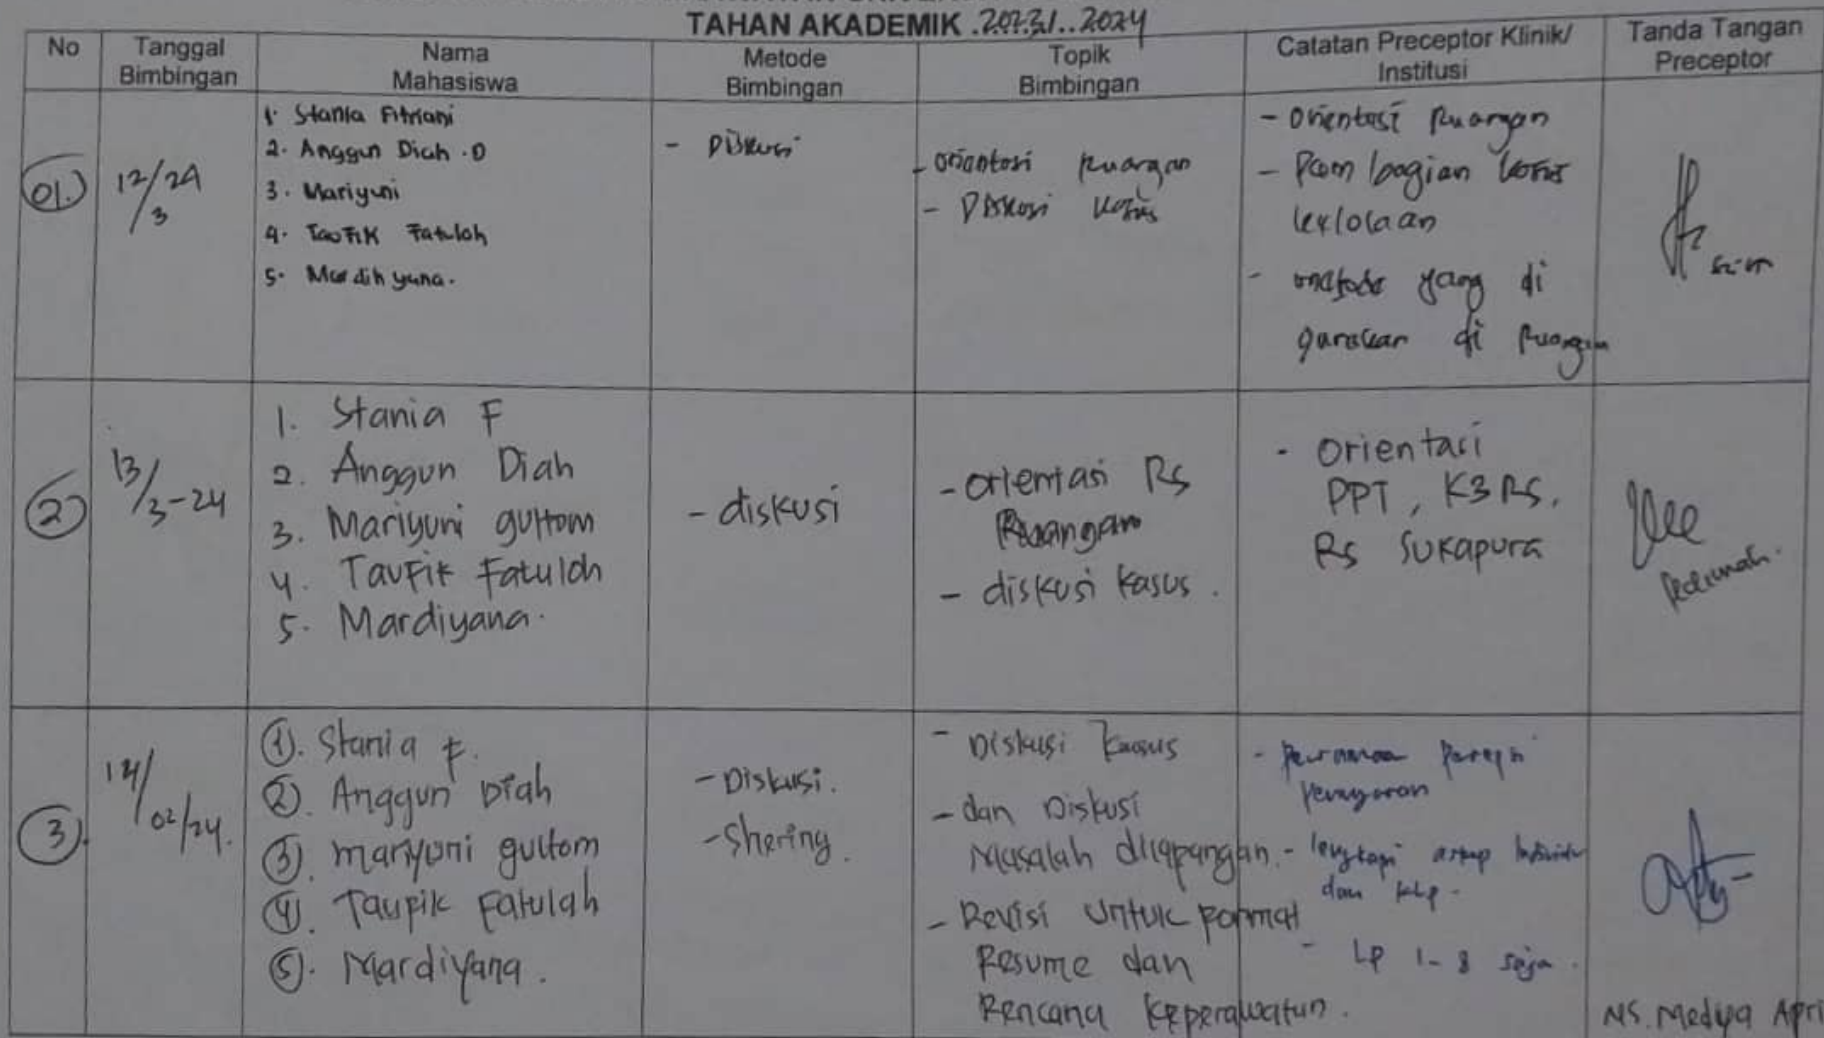 TAHAN AKADEMIK .2023/..2024
No
Tanggal
Bimbingan
Nama
Mahasiswa
Metode
Bimbingan
Topik
Bimbingan
Catatan Preceptor Klinik/
Institusi
Tanda Tangan
Preceptor
01.
12/24
/3
1. Stania Fitriani
2. Anggun Diah .D
3. Mariyuni
4. Taofik Fatuloh
5. Mardihyana.
- Diskusi
- orientasi Ruangan
- Diskusi kasus
- Orientasi Ruangan
- Pembagian kasus
kelolaan
- metode yang di
gunakan di Ruangan
2
13/3-24
1. Stania F
2. Anggun Diah
3. Mariyuni gultom
4. Taufik Fatuloh
5. Mardiyana.
- diskusi
- orientasi Rs
Ruangan
- diskusi kasus.
- Orientasi
PPT, K3RS,
Rs Sukapura
3
14/02/24.
1. Stania F.
2. Anggun Diah
3. maryuni gultom
4. Taupik Fatulah
5. Mardiyana.
- Diskusi.
- Shering.
- Diskusi kasus
- dan Diskusi
Masalah dilapangan.
- Revisi untuk Format
Resume dan
Rencana keperawatan.
- lengkapi askep Individu
dan klp.
- LP 1-8 saja.
NS. Medya Apri